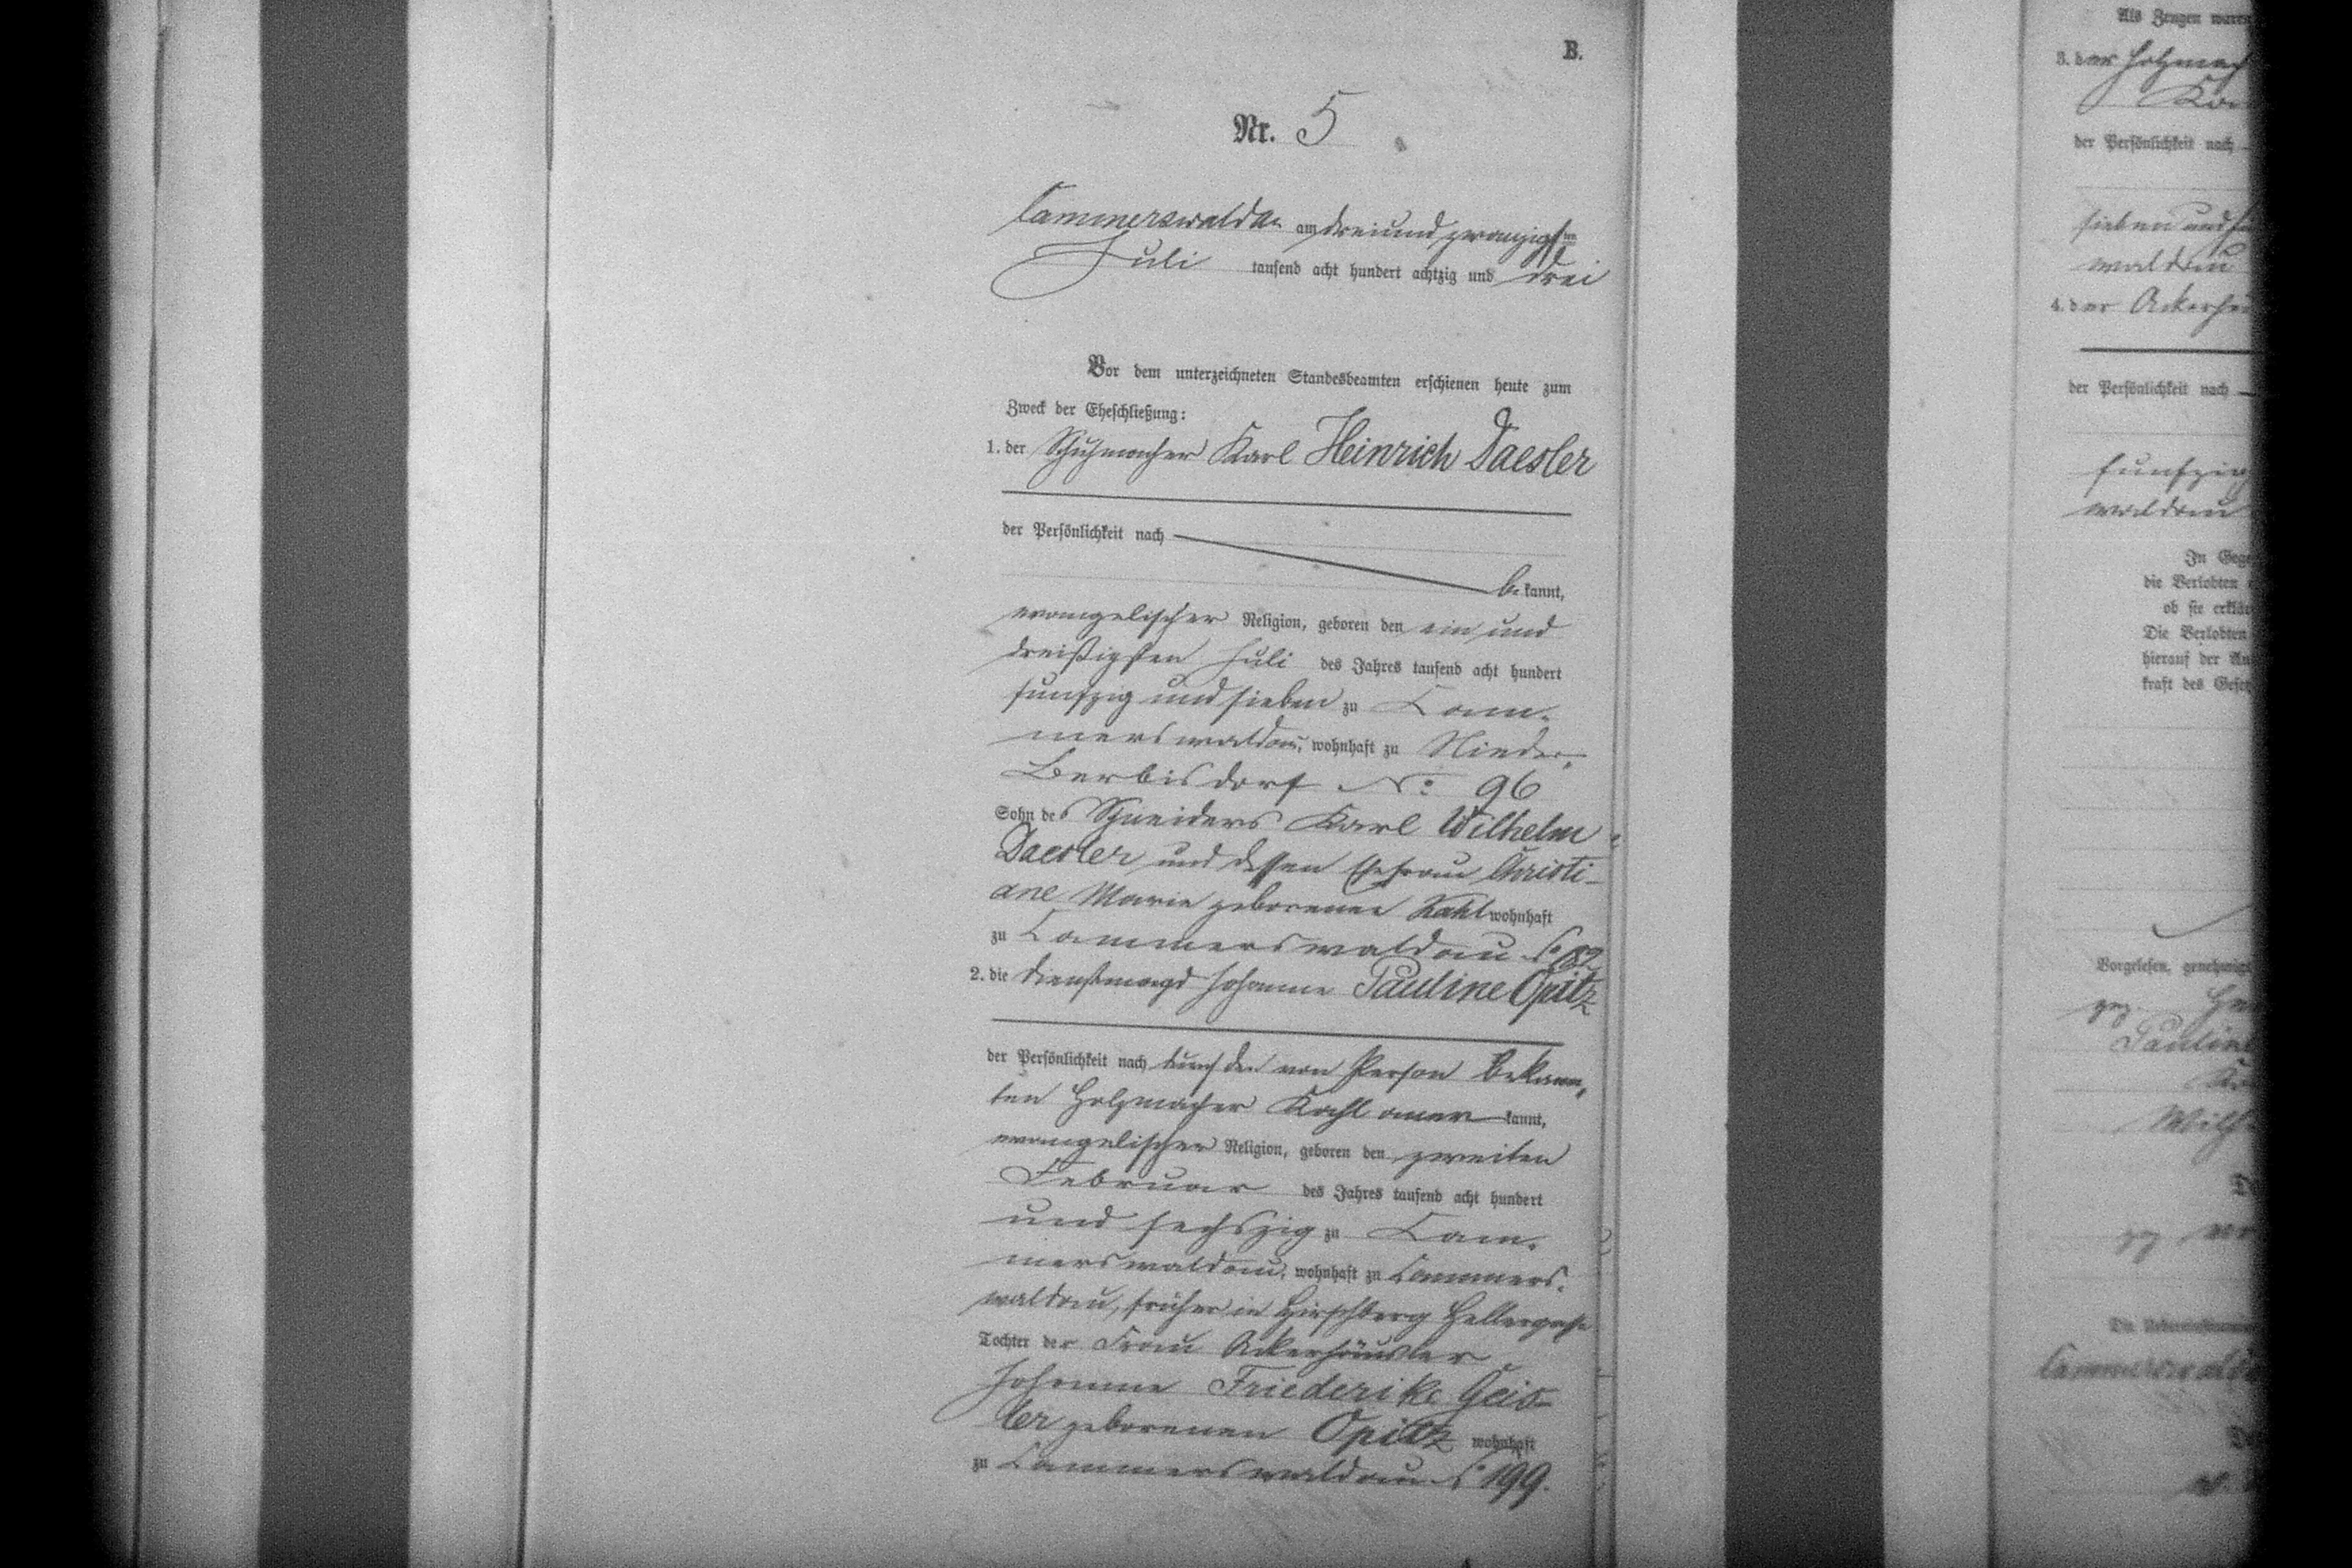 B.
Nr. 5
Cammerswaldau am dreiundzwanzigsten
Juli tausend acht hundert achtzig und drei
Vor dem unterzeichneten Standesbeamten erschienen heute zum
Zweck der Eheschließung:
1. der Schuhmacher Karl Heinrich Daesler
der Persönlichkeit nach
bekannt,
evangelischer Religion, geboren den ein und
dreißigsten Juli des Jahres tausend acht hundert
funfzig und sieben zu Cam-
merswaldau, wohnhaft zu Nieder-
Berbisdorf No: 96
Sohn des Schneiders Karl Wilhelm
Daesler und dessen Ehefrau Christi-
ane Marie geborenen Kahl wohnhaft
zu Cammerswaldau
2. die Dienstmagd Johanne Pauline Opitz
der Persönlichkeit nach durch den von Person bekann-
ten Holzmacher Kahl aner kannt,
evangelischer Religion, geboren den zweiten
Februar des Jahres tausend acht hundert
und sechszig zu Cam-
merswaldau, wohnhaft zu Cammers-
waldau, früher in Hirschberg Hellergasse
Tochter der Frau Ackerhäusler
Johanne Friederike Geis-
ler geborenen Opitz wohnhaft
zu Cammerswaldau No 199.
Als Zeugen waren
3. der Holzmach
der Persönlichkeit nach
sieben und
waldau
4. der Ackerhäu
der Persönlichkeit nach
funfzig
waldau
In Gege
die Verlobten
ob sie erklär
Die Verlobten
hierauf der
kraft des Geset
Vorgelesen, genehmigt
gez.
Pauline
Wilh
gez.
Cammerswalda